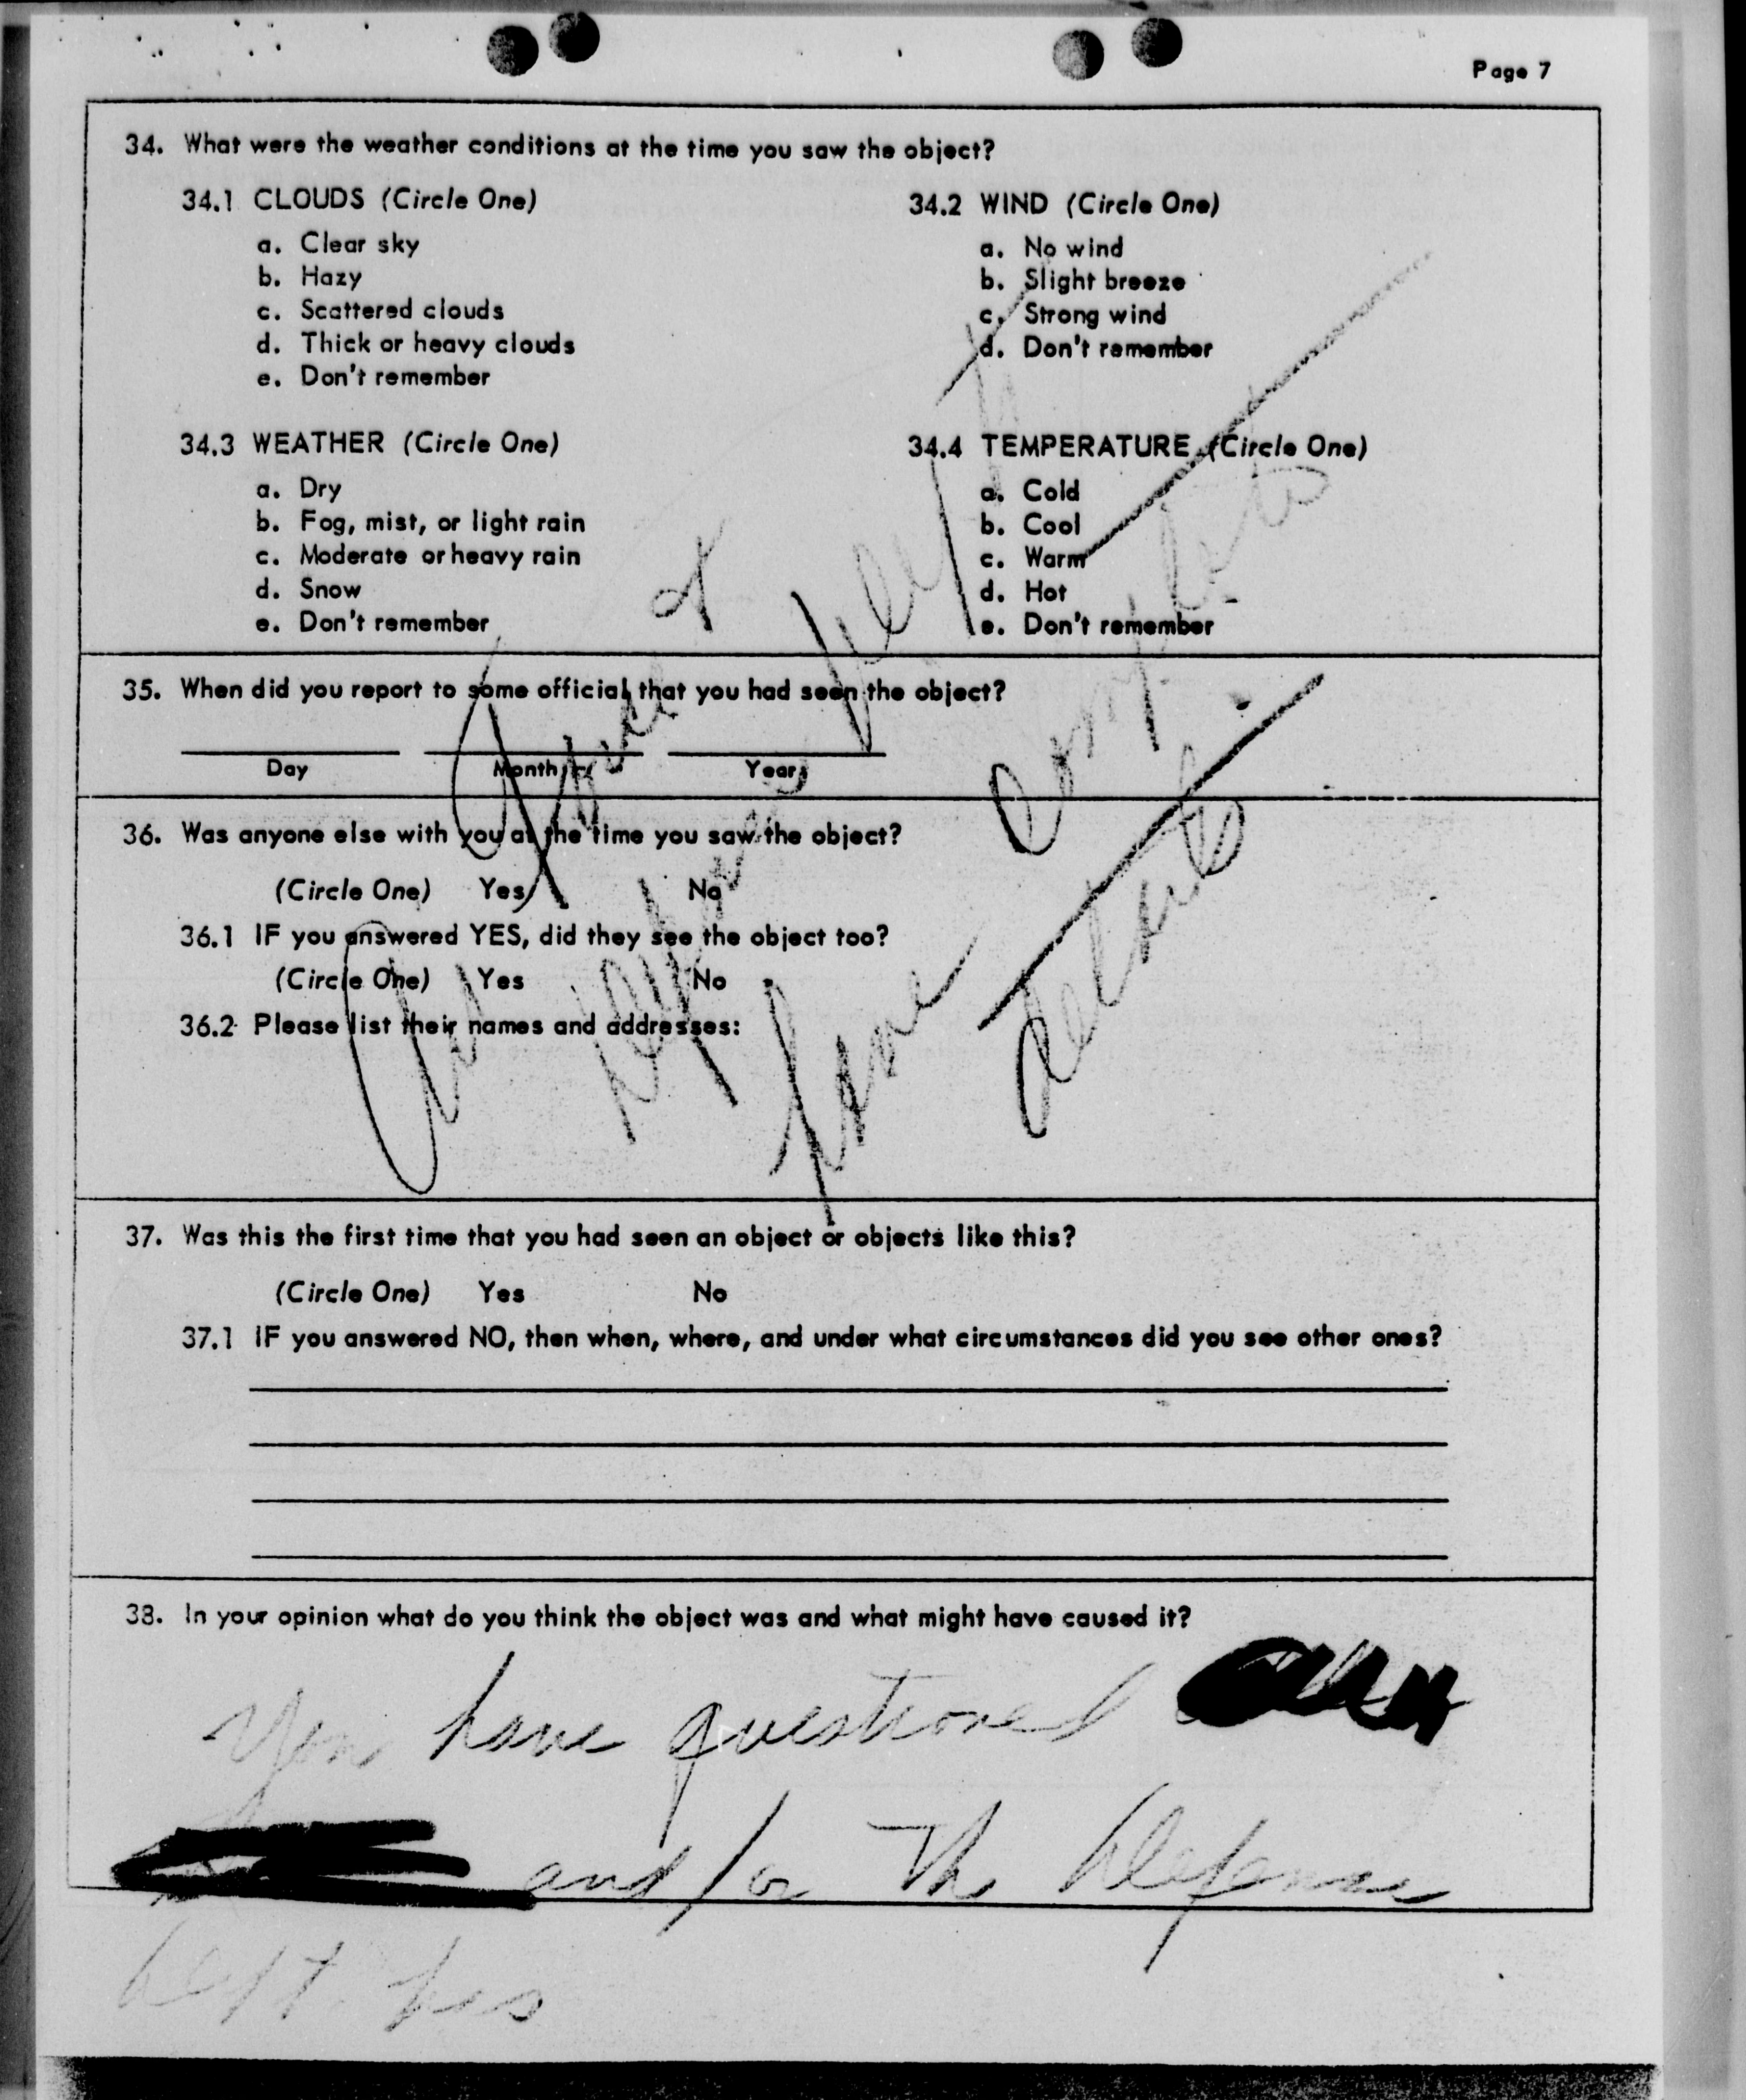 Page 7
34. What were the weather conditions at the time you saw the object?
34.1 CLOUDS (Circle One)
a. Clear sky
b. Hazy
c. Scattered clouds
d. Thick or heavy clouds
e. Don't remember
34.2 WIND (Circle One)
a. No wind
b. Slight breeze
c. Strong wind
d. Don't remember
34.3 WEATHER (Circle One)
a. Dry
b. Fog, mist, or light rain
c. Moderate or heavy rain
d. Snow
e. Don't remember
34.4 TEMPERATURE (Circle One)
a. Cold
b. Cool
c. Warm
d. Hot
e. Don't remember
35. When did you report to some official that you had seen the object?
Day Month Year
36. Was anyone else with you at the time you saw the object?
(Circle One) Yes No
36.1 IF you answered YES, did they see the object too?
(Circle One) Yes No
36.2 Please list their names and addresses:
Air Force
Dept
have
complete
details
37. Was this the first time that you had seen an object or objects like this?
(Circle One) Yes No
37.1 IF you answered NO, then when, where, and under what circumstances did you see other ones?
38. In your opinion what do you think the object was and what might have caused it?
You have questioned
and/or The Defense
Dept. has